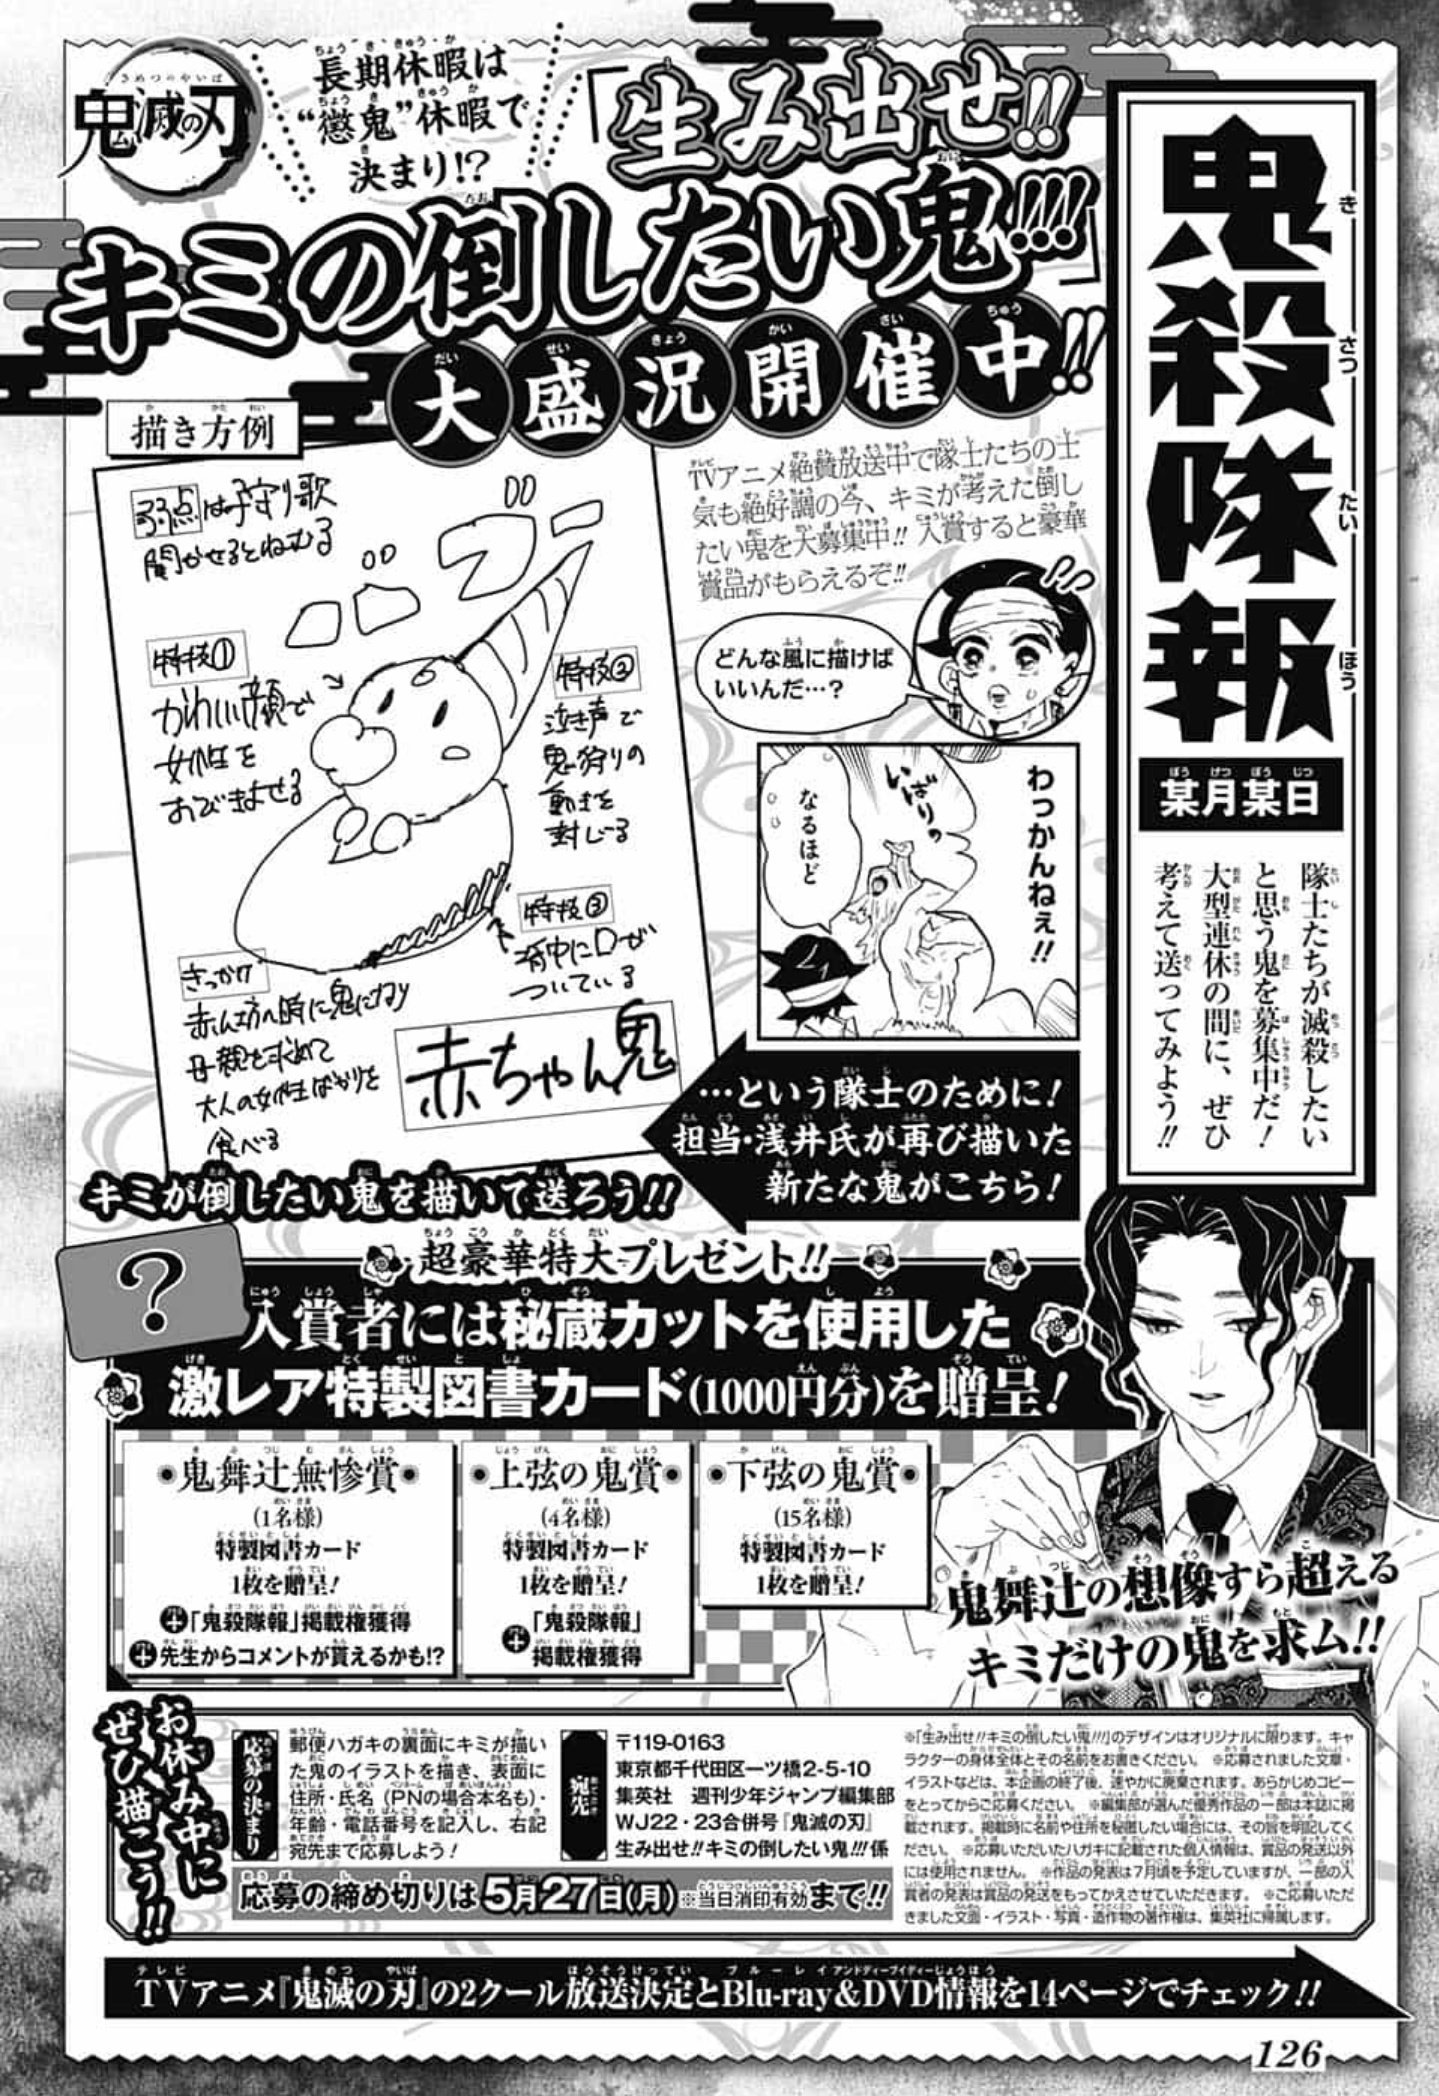 鬼滅の刃
きめつのやいば
長期休暇は
“懲鬼”休暇で
決まり!?
「生み出せ!!
キミの倒したい鬼!!!」
大盛況開催中!!
鬼殺隊報
某月某日
隊士たちが滅殺したい
と思う鬼を募集中だ!
大型連休の間に、ぜひ
考えて送ってみよう!!
TVアニメ絶賛放送中で隊士たちの士
気も絶好調の今、キミが考えた倒し
たい鬼を大募集中!! 入賞すると豪華
賞品がもらえるぞ!!
どんな風に描けば
いいんだ…?
わっかんねぇ!!
いばりっ
なるほど
…という隊士のために!
担当・浅井氏が再び描いた
新たな鬼がこちら!
描き方例
弱点は子守り歌
聞かせるとねむる
特技①
かわいい顔で
女性を
おびきよせる
特技②
泣き声で
鬼狩りの
動きを
封じる
特技③
背中に口が
ついている
きっかけ
赤ん坊の時に鬼になり
母親を求めて
大人の女性ばかりを
食べる
赤ちゃん鬼
キミが倒したい鬼を描いて送ろう!!
?
超豪華特大プレゼント!!
入賞者には秘蔵カットを使用した
激レア特製図書カード(1000円分)を贈呈!
●鬼舞辻無惨賞●
(1名様)
特製図書カード
1枚を贈呈!
+「鬼殺隊報」掲載権獲得
+先生からコメントが貰えるかも!?
●上弦の鬼賞●
(4名様)
特製図書カード
1枚を贈呈!
+「鬼殺隊報」
掲載権獲得
●下弦の鬼賞●
(15名様)
特製図書カード
1枚を贈呈!
鬼舞辻の想像すら超える
キミだけの鬼を求ム!!
お休み中に
ぜひ描こう!!
応募の決まり
郵便ハガキの裏面にキミが描い
た鬼のイラストを描き、表面に
住所・氏名(PNの場合本名も)・
年齢・電話番号を記入し、右記
宛先まで応募しよう!
宛先
〒119-0163
東京都千代田区一ツ橋2-5-10
集英社 週刊少年ジャンプ編集部
WJ22・23合併号『鬼滅の刃』
生み出せ!!キミの倒したい鬼!!!係
応募の締め切りは5月27日(月)※当日消印有効まで!!
※「生み出せ!!キミの倒したい鬼!!!」のデザインはオリジナルに限ります。キャ
ラクターの身体全体とその名前をお書きください。 ※応募されました文章・
イラストなどは、本企画の終了後、速やかに廃棄されます。あらかじめコピー
をとってからご応募ください。 ※編集部が選んだ優秀作品の一部は本誌に掲
載されます。掲載時に名前や住所を秘匿したい場合には、その旨を明記してく
ださい。 ※応募いただいたハガキに記載された個人情報は、賞品の発送以外
には使用されません。 ※作品の発表は7月頃を予定していますが、一部の入
賞者の発表は賞品の発送をもってかえさせていただきます。 ※ご応募いただ
きました文面・イラスト・写真・造作物の著作権は、集英社に帰属します。
TVアニメ『鬼滅の刃』の2クール放送決定とBlu-ray&DVD情報を14ページでチェック!!
126